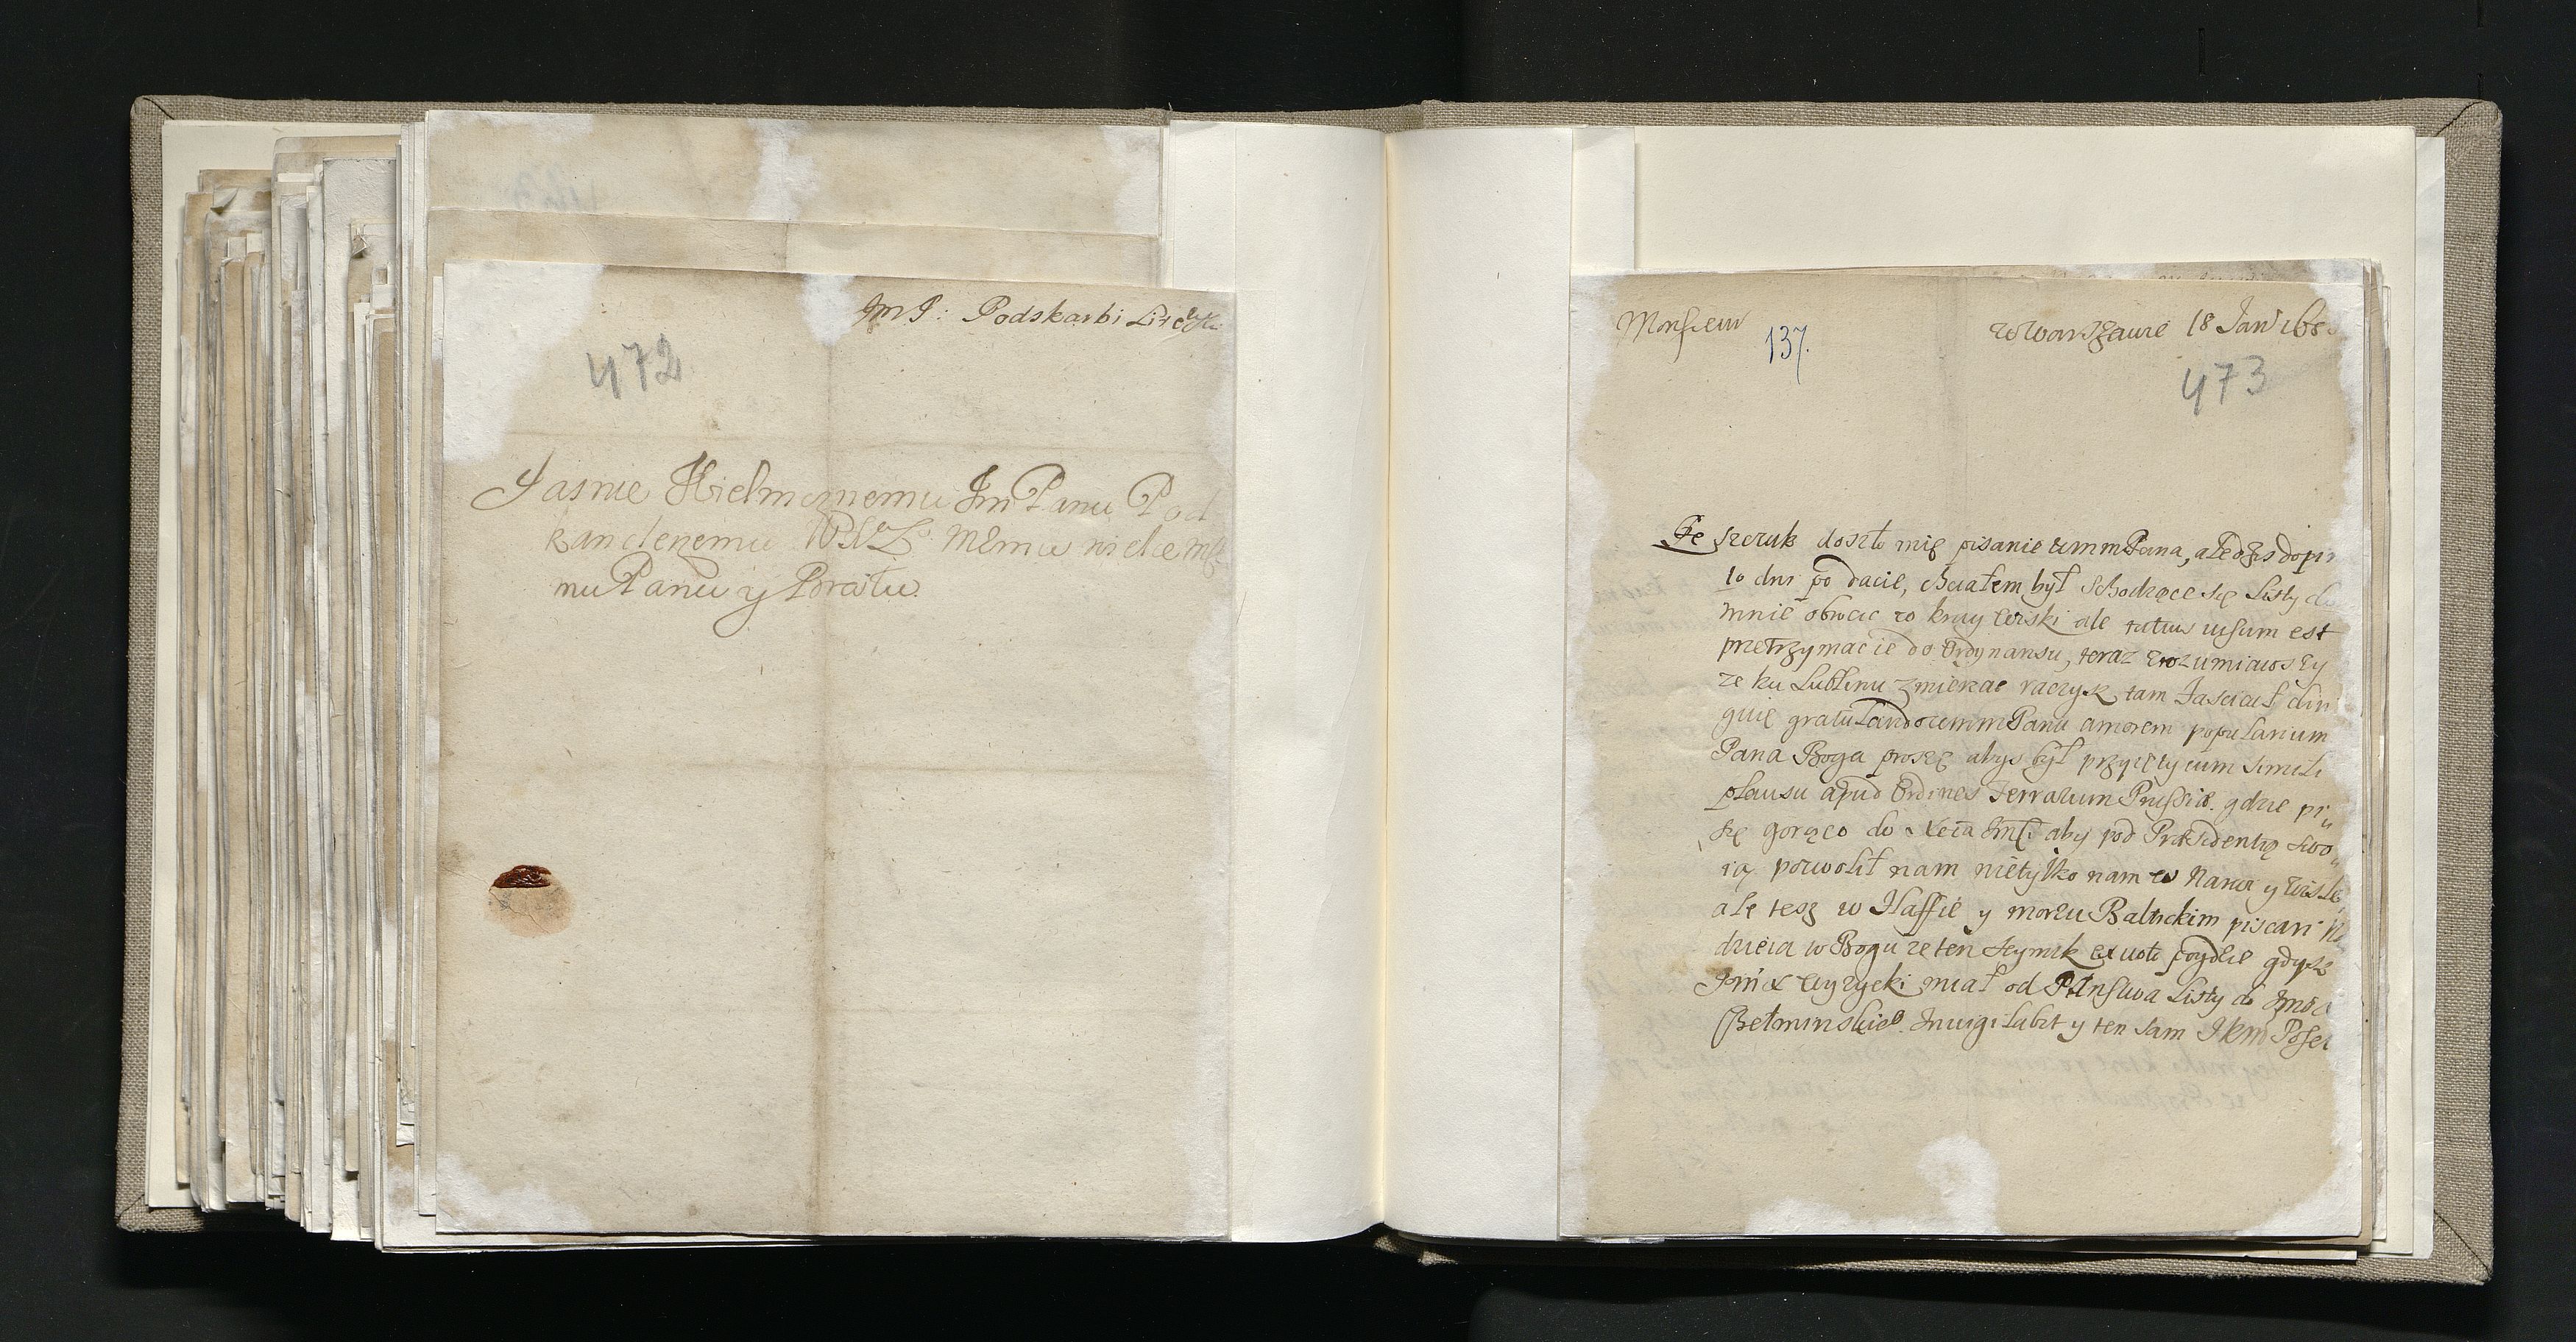 Im P: Podskarbi Litewski
472
Jasnie Wielmoznemu Im Panu Pod
kanclerzemu WXL Memu wielce Mś
mu Panu y Bratu.
Monsieur
137.
w Warszawie 18 Jan 168
473
szczuk doszło mię pisanie wmmPana, ale dopir
10 dni po dacie, chciałem był schodzące się Listy do
mnie obrocic w kray ale tutius visum est
przetrzymac ie do Ordynansu, teraz zrozumiawszy
ze ku Lublinu zmierzac raczysz tam fasciculum diri
guię gratulando wmmPanu amorem popularium
Pana Boga proszę abys był przyięty cum simili
plausu apud Ordines Terrarum Prussiæ. gdzie pi
się gorąco do Xcia Imści aby pod Præsidentią swo
ią pozwolił nam nietylko nam w Narwi y Wisle
ale tesz w Haffie y morzu Baltickim piscari
dzieia w Bogu ze ten Seymik ex voto poydzie gdysz
Im X Wyzycki miał od Panstwa Listy do Imści
Chełminskie. Invigilabit y ten sam Posel